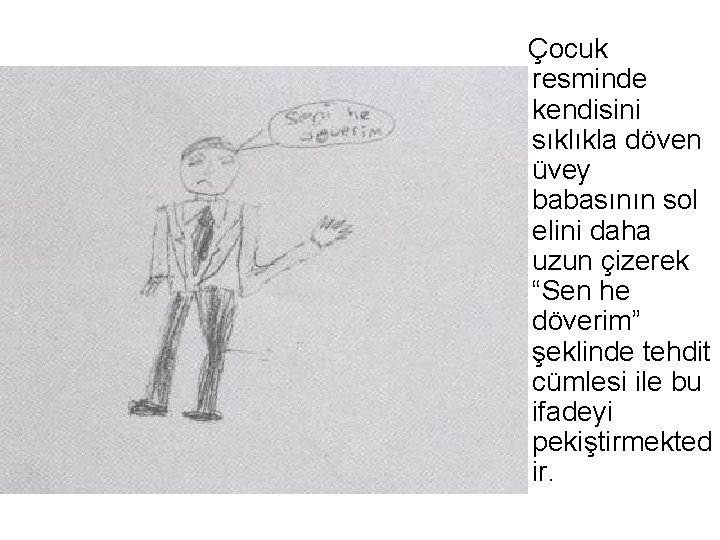 Seni he
döverim
Çocuk
resminde
kendisini
sıklıkla döven
üvey
babasının sol
elini daha
uzun çizerek
“Sen he
döverim”
şeklinde tehdit
cümlesi ile bu
ifadeyi
pekiştirmekted
ir.